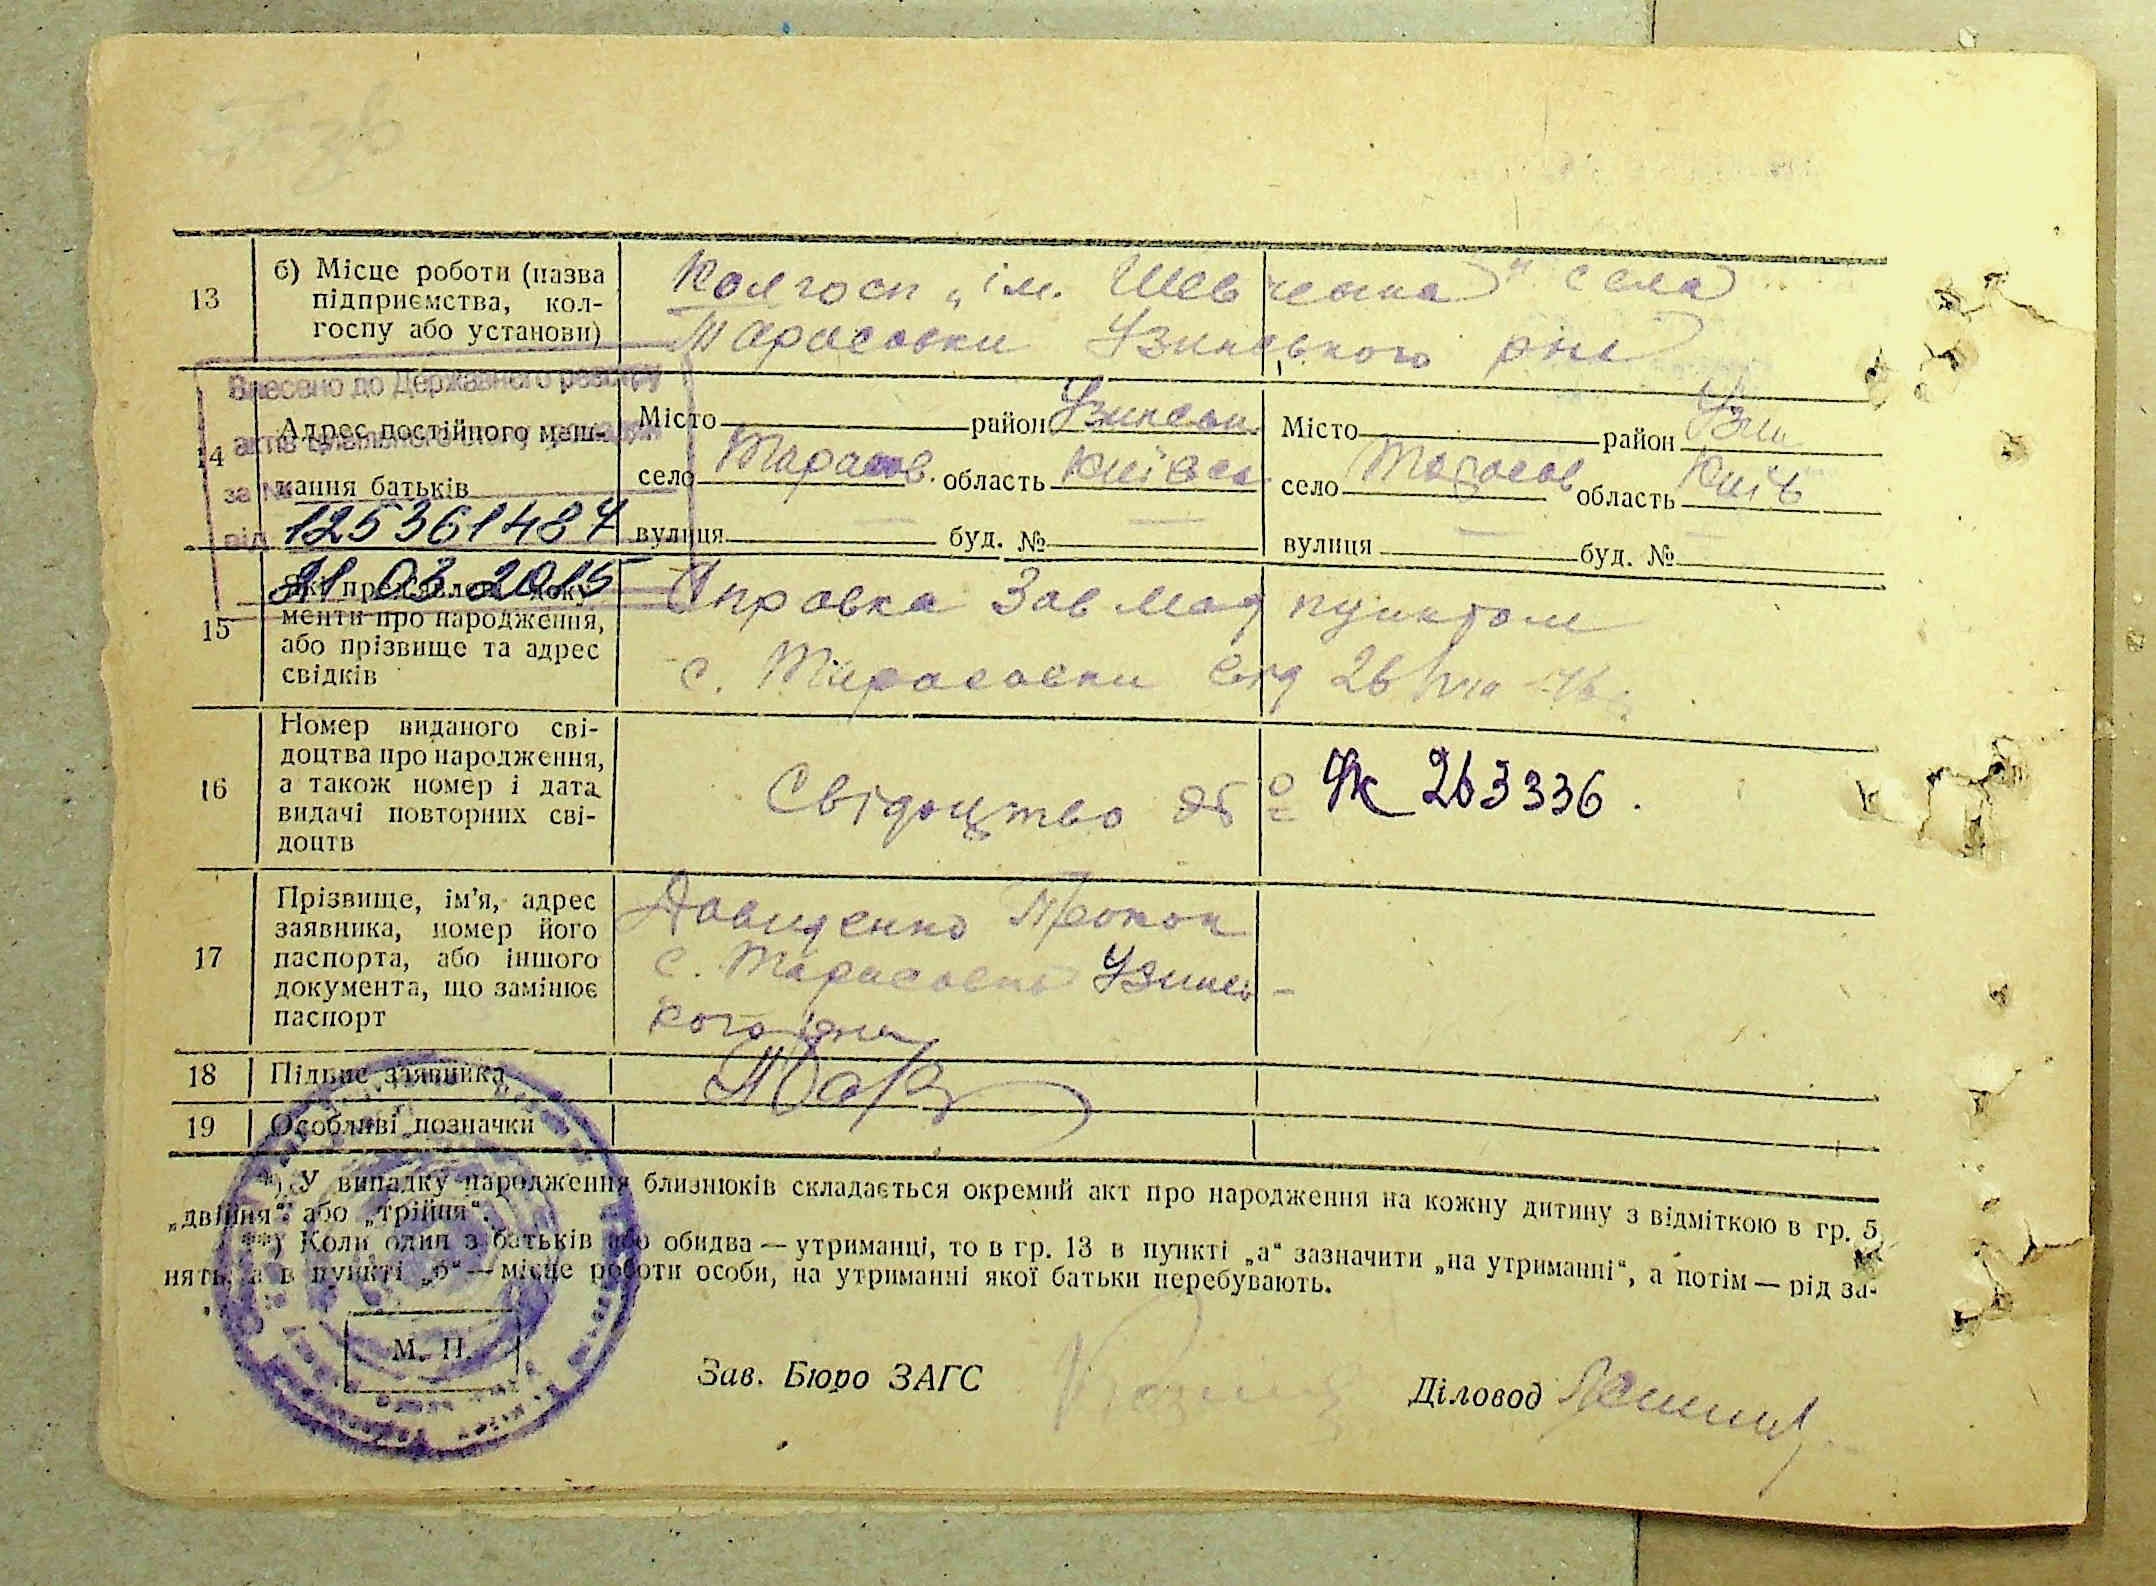 13
б) Місце роботи (назва
підприємства, кол-
госпу або установи)
Колгосп „ім. Шевченка" села
Тарасовки Узинського р-на
Внесено до Державного реєстру
актів цивільного стану громадян
за №
125361487
від
21 03 2015
14
Адрес постійного меш-
кання батьків
Місто район Узинськ
село Тарасов. область Київськ
вулиця — буд. № —
Місто район Узин
село Тарасов область Київ
вулиця — буд. № —
15
Які пред'явлені доку-
менти про народження,
або прізвище та адрес
свідків
Справка Зав мед пунктом
с. Тарасовки від 26
16
Номер виданого сві-
доцтва про народження,
а також номер і дата
видачі повторних сві-
доцтв
Свідоцтво № ФК 263336.
17
Прізвище, ім’я, адрес
заявника, номер його
паспорта, або іншого
документа, що замінює
паспорт
Давиденко Прокоп
с. Тарасовка Узинсь-
кого р-на
18
Підпис заявника
19
Особливі позначки
*) У випадку народження близнюків складається окремий акт про народження на кожну дитину з відміткою в гр. 5
„двійня“ або „трійня“.
**) Коли один з батьків або обидва — утриманці, то в гр. 13 в пункті „а“ зазначити „на утриманні“, а потім — рід за-
нять, а в пункті „б“ — місце роботи особи, на утриманні якої батьки перебувають.
М. П.
Зав. Бюро ЗАГС
Діловод